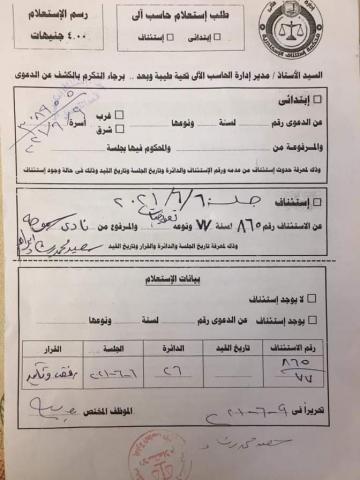 طلب إستعلام حاسب آلى
☐ إبتدائى ☐ إستئناف
رسم الإستعلام
٤.٠٠ جنيهات
السيد الأستاذ / مدير إدارة الحاسب الآلى تحية طيبة وبعد .. برجاء التكرم بالكشف عن الدعوى
☐ إبتدائى :
عن الدعوى رقم لسنة ونوعها أسرة/ ☐ غرب ☐ شرق
والمرفوعة من والمحكوم فيها بجلسة
وذلك لمعرفة حدوث إستئناف من عدمه ورقم الإستئناف والدائرة وتاريخ الجلسة وتاريخ القيد وذلك فى حالة وجود إستئناف
☐ إستئناف : جلسة ٢٠٢١/٦/٦
عن الاستئناف رقم ٨٦٥ لسنة ٧٧ ونوعه تعويضات والمرفوع من نادى
وذلك لمعرفة تاريخ الجلسة والدائرة والقرار وتاريخ القيد
بيانات الإستعلام
☐ لا يوجد إستئناف
☐ يوجد إستئناف عن الدعوى رقم لسنة ونوعها
رقم الاستئناف تاريخ القيد الدائرة الجلسة القرار
٨٦٥/٧٧ ٢٦ ٢٠٢١-٦-٦ رفض وتأييد
تحريراً فى ٩-٦-٢٠٢١ الموظف المختص